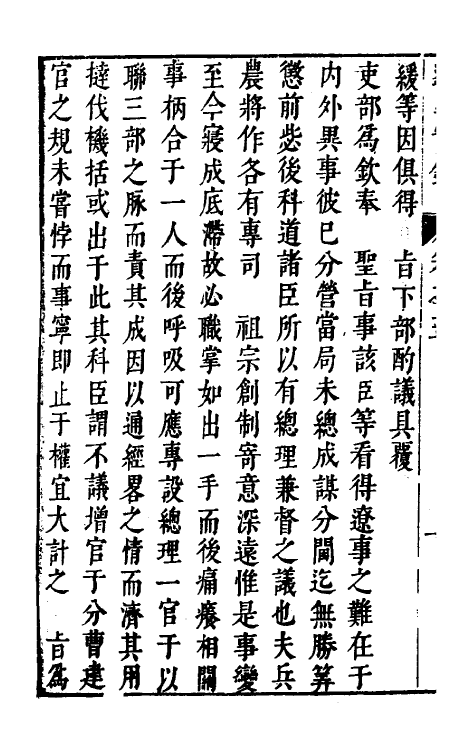 緩等因俱得　旨下部酌議具覆
吏部為欽奉　聖旨事該臣等看得遼事之難在于
内外異事彼巳分營當局未總成謀分閫迄無勝筭
懲前毖後科道諸臣所以有總理兼督之議也夫兵
農將作各有專司　祖宗創制寄意深遠惟是事變
至今寢成底滯故必職掌如出一手而後痛癢相關
事柄合于一人而後呼吸可應專設總理一官于以
聯三部之脉而責其成因以通經畧之情而濟其用
撻伐機括或出于此其科臣謂不議增官于分曹建
官之規未嘗悖而事寧即止于權宜大計之　旨為